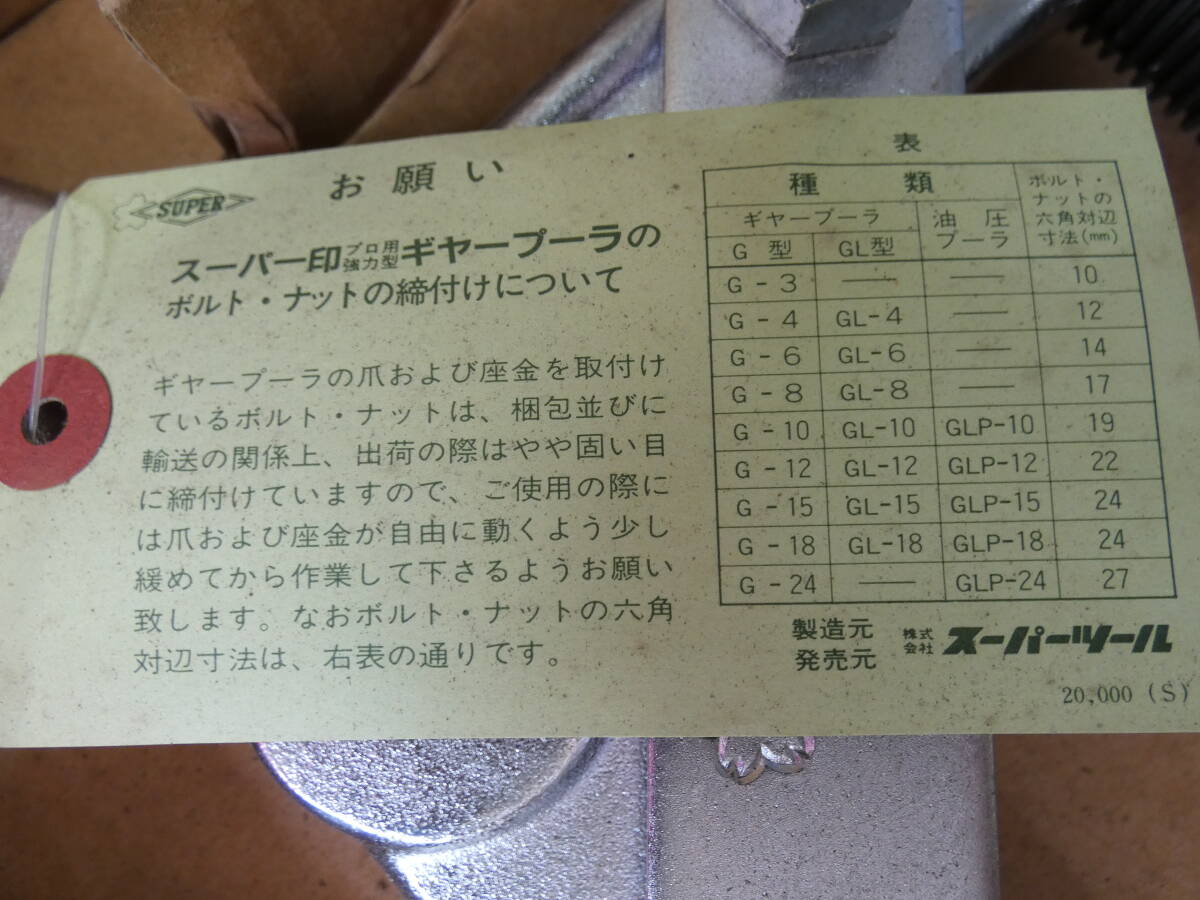 SUPER
お願い
スーパー印プロ用強力型ギヤープーラの
ボルト・ナットの締付けについて
ギヤープーラの爪および座金を取付け
ているボルト・ナットは、梱包並びに
輸送の関係上、出荷の際はやや固い目
に締付けていますので、ご使用の際に
は爪および座金が自由に動くよう少し
緩めてから作業して下さるようお願い
致します。なおボルト・ナットの六角
対辺寸法は、右表の通りです。
表
種類 ボルト・
ナットの
六角対辺
寸法(mm)
ギヤープーラ 油圧
プーラ
G型 GL型
G-3 — — 10
G-4 GL-4 — 12
G-6 GL-6 — 14
G-8 GL-8 — 17
G-10 GL-10 GLP-10 19
G-12 GL-12 GLP-12 22
G-15 GL-15 GLP-15 24
G-18 GL-18 GLP-18 24
G-24 — GLP-24 27
製造元
発売元 株式会社 スーパーツール
20,000 (S)